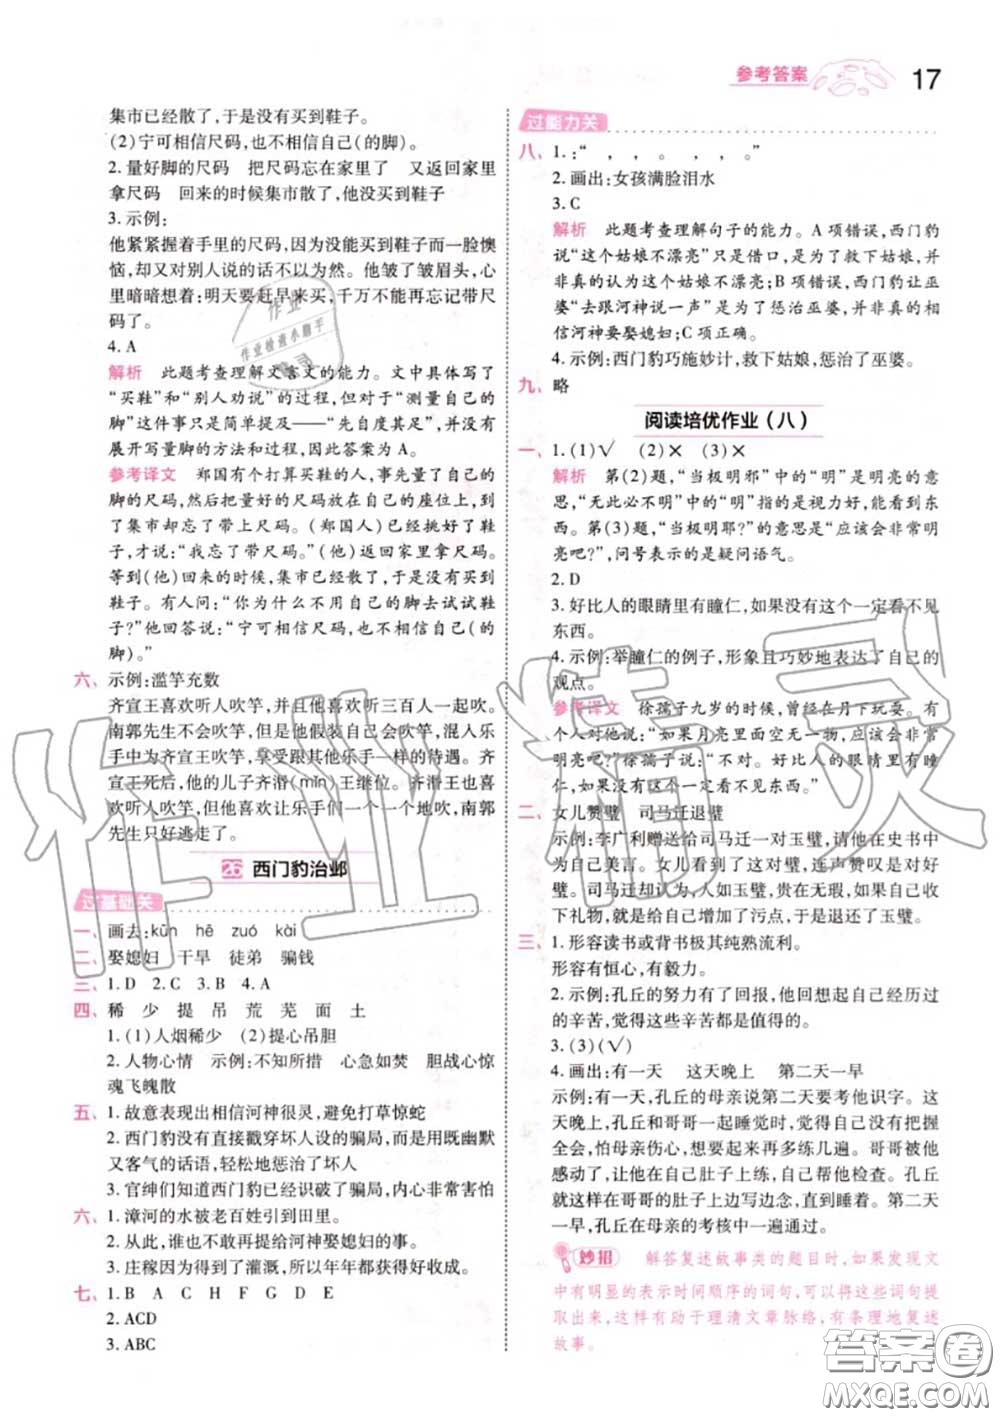 参考答案
17
集市已经散了,于是没有买到鞋子。
(2)宁可相信尺码,也不相信自己(的脚)。
2. 量好脚的尺码　把尺码忘在家里了　又返回家里
拿尺码　回来的时候集市散了,他没买到鞋子
3. 示例:
他紧紧握着手里的尺码,因为没能买到鞋子而一脸懊
恼,却又对别人说的话不以为然。他皱了皱眉头,心
里暗暗想着:明天要赶早来买,千万不能再忘记带尺
码了。
4. A
解析　此题考查理解文言文的能力。文中具体写了
“买鞋”和“别人劝说”的过程,但对于“测量自己的
脚”这件事只是简单提及——“先自度其足”,并没有
展开写测量的方法和过程。因此答案为 A。
参考译文　郑国有个打算买鞋的人,事先量了自己的
脚的尺码,然后把量好的尺码放在自己的座位上,到
了集市却忘了带上尺码。(郑国人)已经选好了鞋
子,才说:“我忘了带尺码。”(他)返回家里拿尺码。
等到(他)回来的时候,集市已经散了,于是没有买到
鞋子。有人问:“你为什么不用自己的脚去试试鞋
子?”他回答说:“宁可相信尺码,也不相信自己(的
脚)。”
六、示例:滥竽充数
齐宣王喜欢听人吹竽,并且喜欢听三百人一起吹竽。
南郭先生不会吹竽,但他假装自己会吹竽,混入人群
中为齐宣王吹竽,享受跟其他乐手一样的待遇。齐
宣王死后,他的儿子齐湣(mǐn)王继位。齐湣王也喜
欢听人吹竽,但他喜欢让乐手们一个一个地吹,南郭
先生只好逃走了。
26 西门豹治邺
过基础关
一、画去:kūn　hē　zuó　kài
二、娶媳妇　干旱　徒弟　骗钱
三、1. D　2. C　3. B　4. A
四、稀　少　提　吊　荒　芜　面　土
1. (1)人烟稀少　(2)提心吊胆
2. 人物心情　示例:不知所措　心急如焚　胆战心惊
魂飞魄散
五、1. 故意表现出相信河神很灵,避免打草惊蛇
2. 西门豹没有直接戳穿坏人设的骗局,而是用既幽默
又客气的话语,轻松地惩治了坏人
3. 官绅们知道西门豹已经识破了骗局,内心非常害怕
六、1. 漳河的水被老百姓引到田里。
2. 从此,谁也不敢再提给河神娶媳妇的事。
3. 庄稼因为得到了灌溉,所以年年都有很好收成。
七、1. B　A　C　H　F　G　D　E
2. ACD
3. ABC
过能力关
八、1. :“　,　,　。　,　,　。”
2. 画出:女孩满脸泪水
3. C
解析　此题考查理解句子的能力。A 项错误,西门豹
说“这个姑娘不漂亮”只是借口,是为了救下姑娘,并
非真的认为这个姑娘不漂亮;B 项错误,西门豹让巫
婆“去跟河神说一声”是为了惩治巫婆,并非真的相
信河神要娶媳妇;C 项正确。
4. 示例:西门豹巧施妙计,救下姑娘,惩治了巫婆。
九、略
阅读培优作业(八)
一、1. (1)√　(2)×　(3)×
解析　第(2)题,“当极明邪”中的“明”是明亮的意
思,“无此必不明”中的“明”指的是视力好,能看到东
西。第(3)题,“当极明耶?”的意思是“应该会非常明
亮吧?”,问号表示的是疑问语气。
2. D
3. 好比人的眼睛里有瞳仁,如果没有这个一定看不见
东西。
4. 示例:举瞳仁的例子,形象且巧妙地表达了自己的
观点。
参考译文　徐孺子九岁的时候,曾经在月下玩耍。有
个人对他说:“如果月亮里面空无一物,应该会非常
明亮吧?”徐孺子说:“不对。好比人的眼睛里有瞳
仁,如果没有这个一定看不见东西。”
二、女儿赞璧　司马迁退璧
示例:李广利赠送给司马迁一对玉璧,请他在史书中
为自己美言。女儿看到这对璧,连声赞叹是一对好
璧。司马迁发现自己心里非常喜欢玉璧,但如果收
下礼物,就会给自己增加了污点,于是还退了玉璧。
三、1. 形容读书或背书极其纯熟流利。
形容有恒心,有毅力。
2. 示例:孔丘的努力有了回报,他回想起自己经历过
的辛苦,觉得这些辛苦都是值得的。
3. (3)(√)
4. 画出:有一天　这天晚上　第二天一早
示例:有一天,孔丘的母亲说第二天要考他识字。这
天晚上,孔丘和哥哥一起睡觉时,觉得自己没有把握
全会,怕母亲伤心,想要起来再多练几遍。哥哥被他
感动了,让他在自己肚子上练,自己帮他检查。孔丘
就这样在哥哥的肚子上边写边念,直到睡着。第二天
一早,孔丘在母亲的考核中一遍通过。
妙招　解答复述故事类的题目时,如果发现文
中有明显的表示时间顺序的词句,可以将这些词句提
取出来,这样有助于理清文章脉络,有条理地复述
故事。
作业精灵
作业
作业检查小助手
精灵
答案圈
MXQE.COM